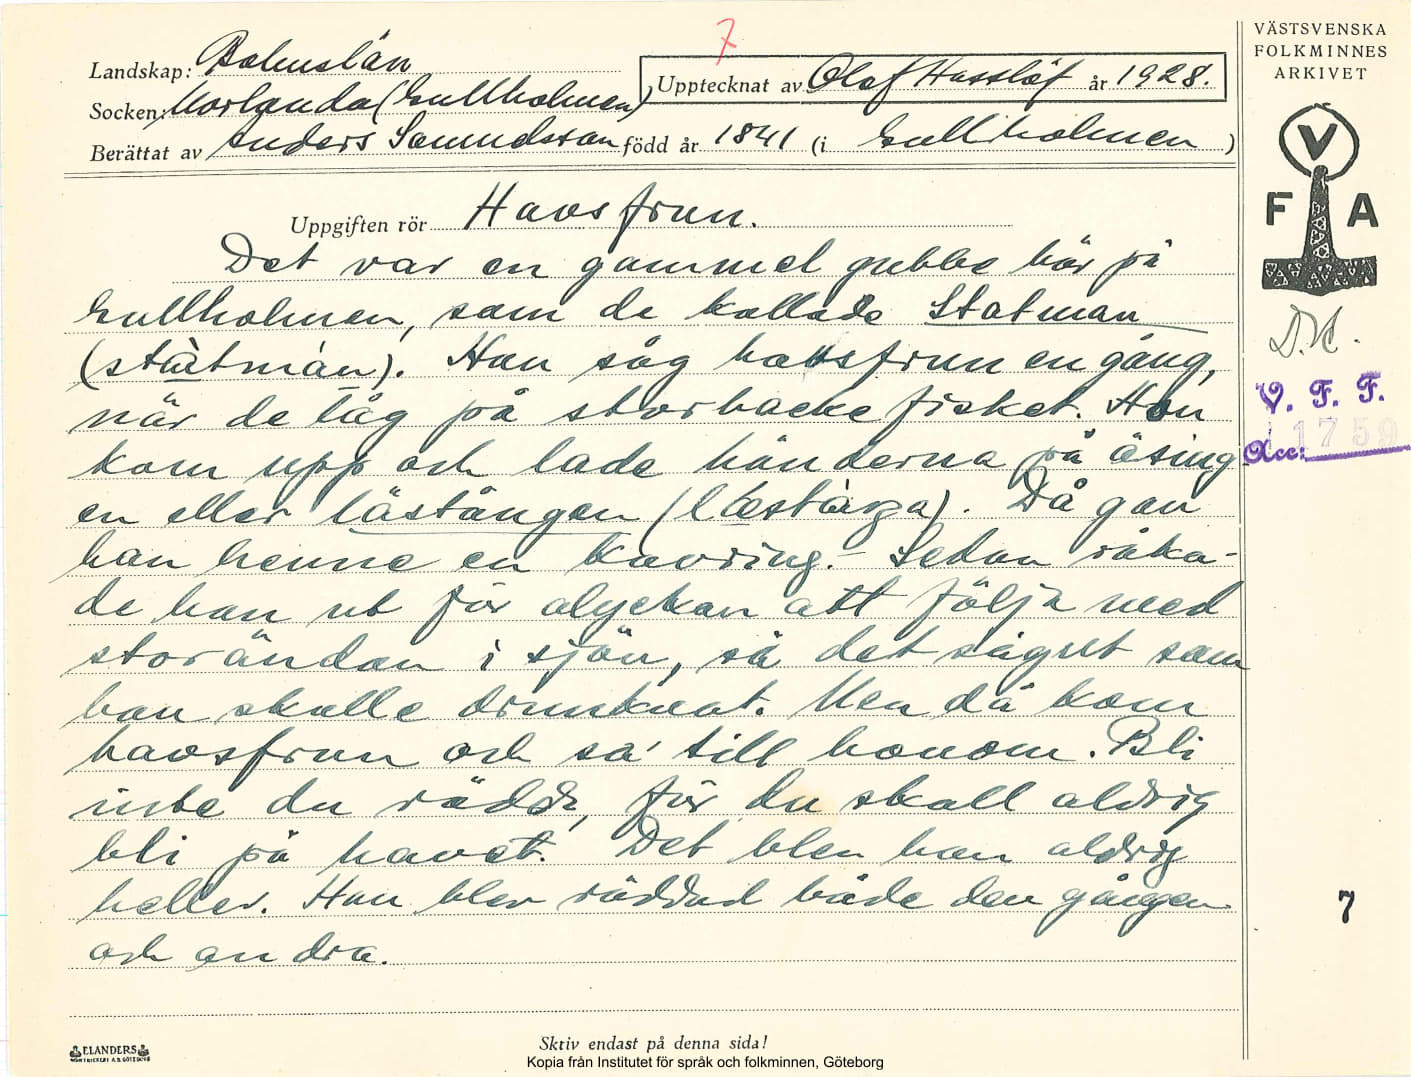 7
Landskap: Bohuslän
Socken: Morlanda (Gullholmen)
Upptecknat av Olof Hasslöf år 1928.
Berättat av Anders Samuelsson född år 1841 (i Gullholmen)
Uppgiften rör Havsfrun.
Det var en gammel gubbe här på
Gullholmen, som de kallade Statman
(státmàn). Han såg havsfrun en gång,
när de låg på storbacke fisket. Hon
kom upp och lade händerna på äsing
en eller lästången (læstàŋa). Då gav
han henne en kavring. – Sedan råka-
de han ut för olyckan att följa med
storändan i sjön, så det såg ut som
han skulle drunknat. Men då kom
havsfrun och sa' till honom. Bli
inte du rädd, för du skall aldrig
bli på havet. Det blev han aldrig
heller. Han blev räddad både den gången
och andra.
Skriv endast på denna sida!
Kopia från Institutet för språk och folkminnen, Göteborg
ELANDERS
VÄSTSVENSKA
FOLKMINNES
ARKIVET
V
F A
V. F. F.
Acc: 1759
7